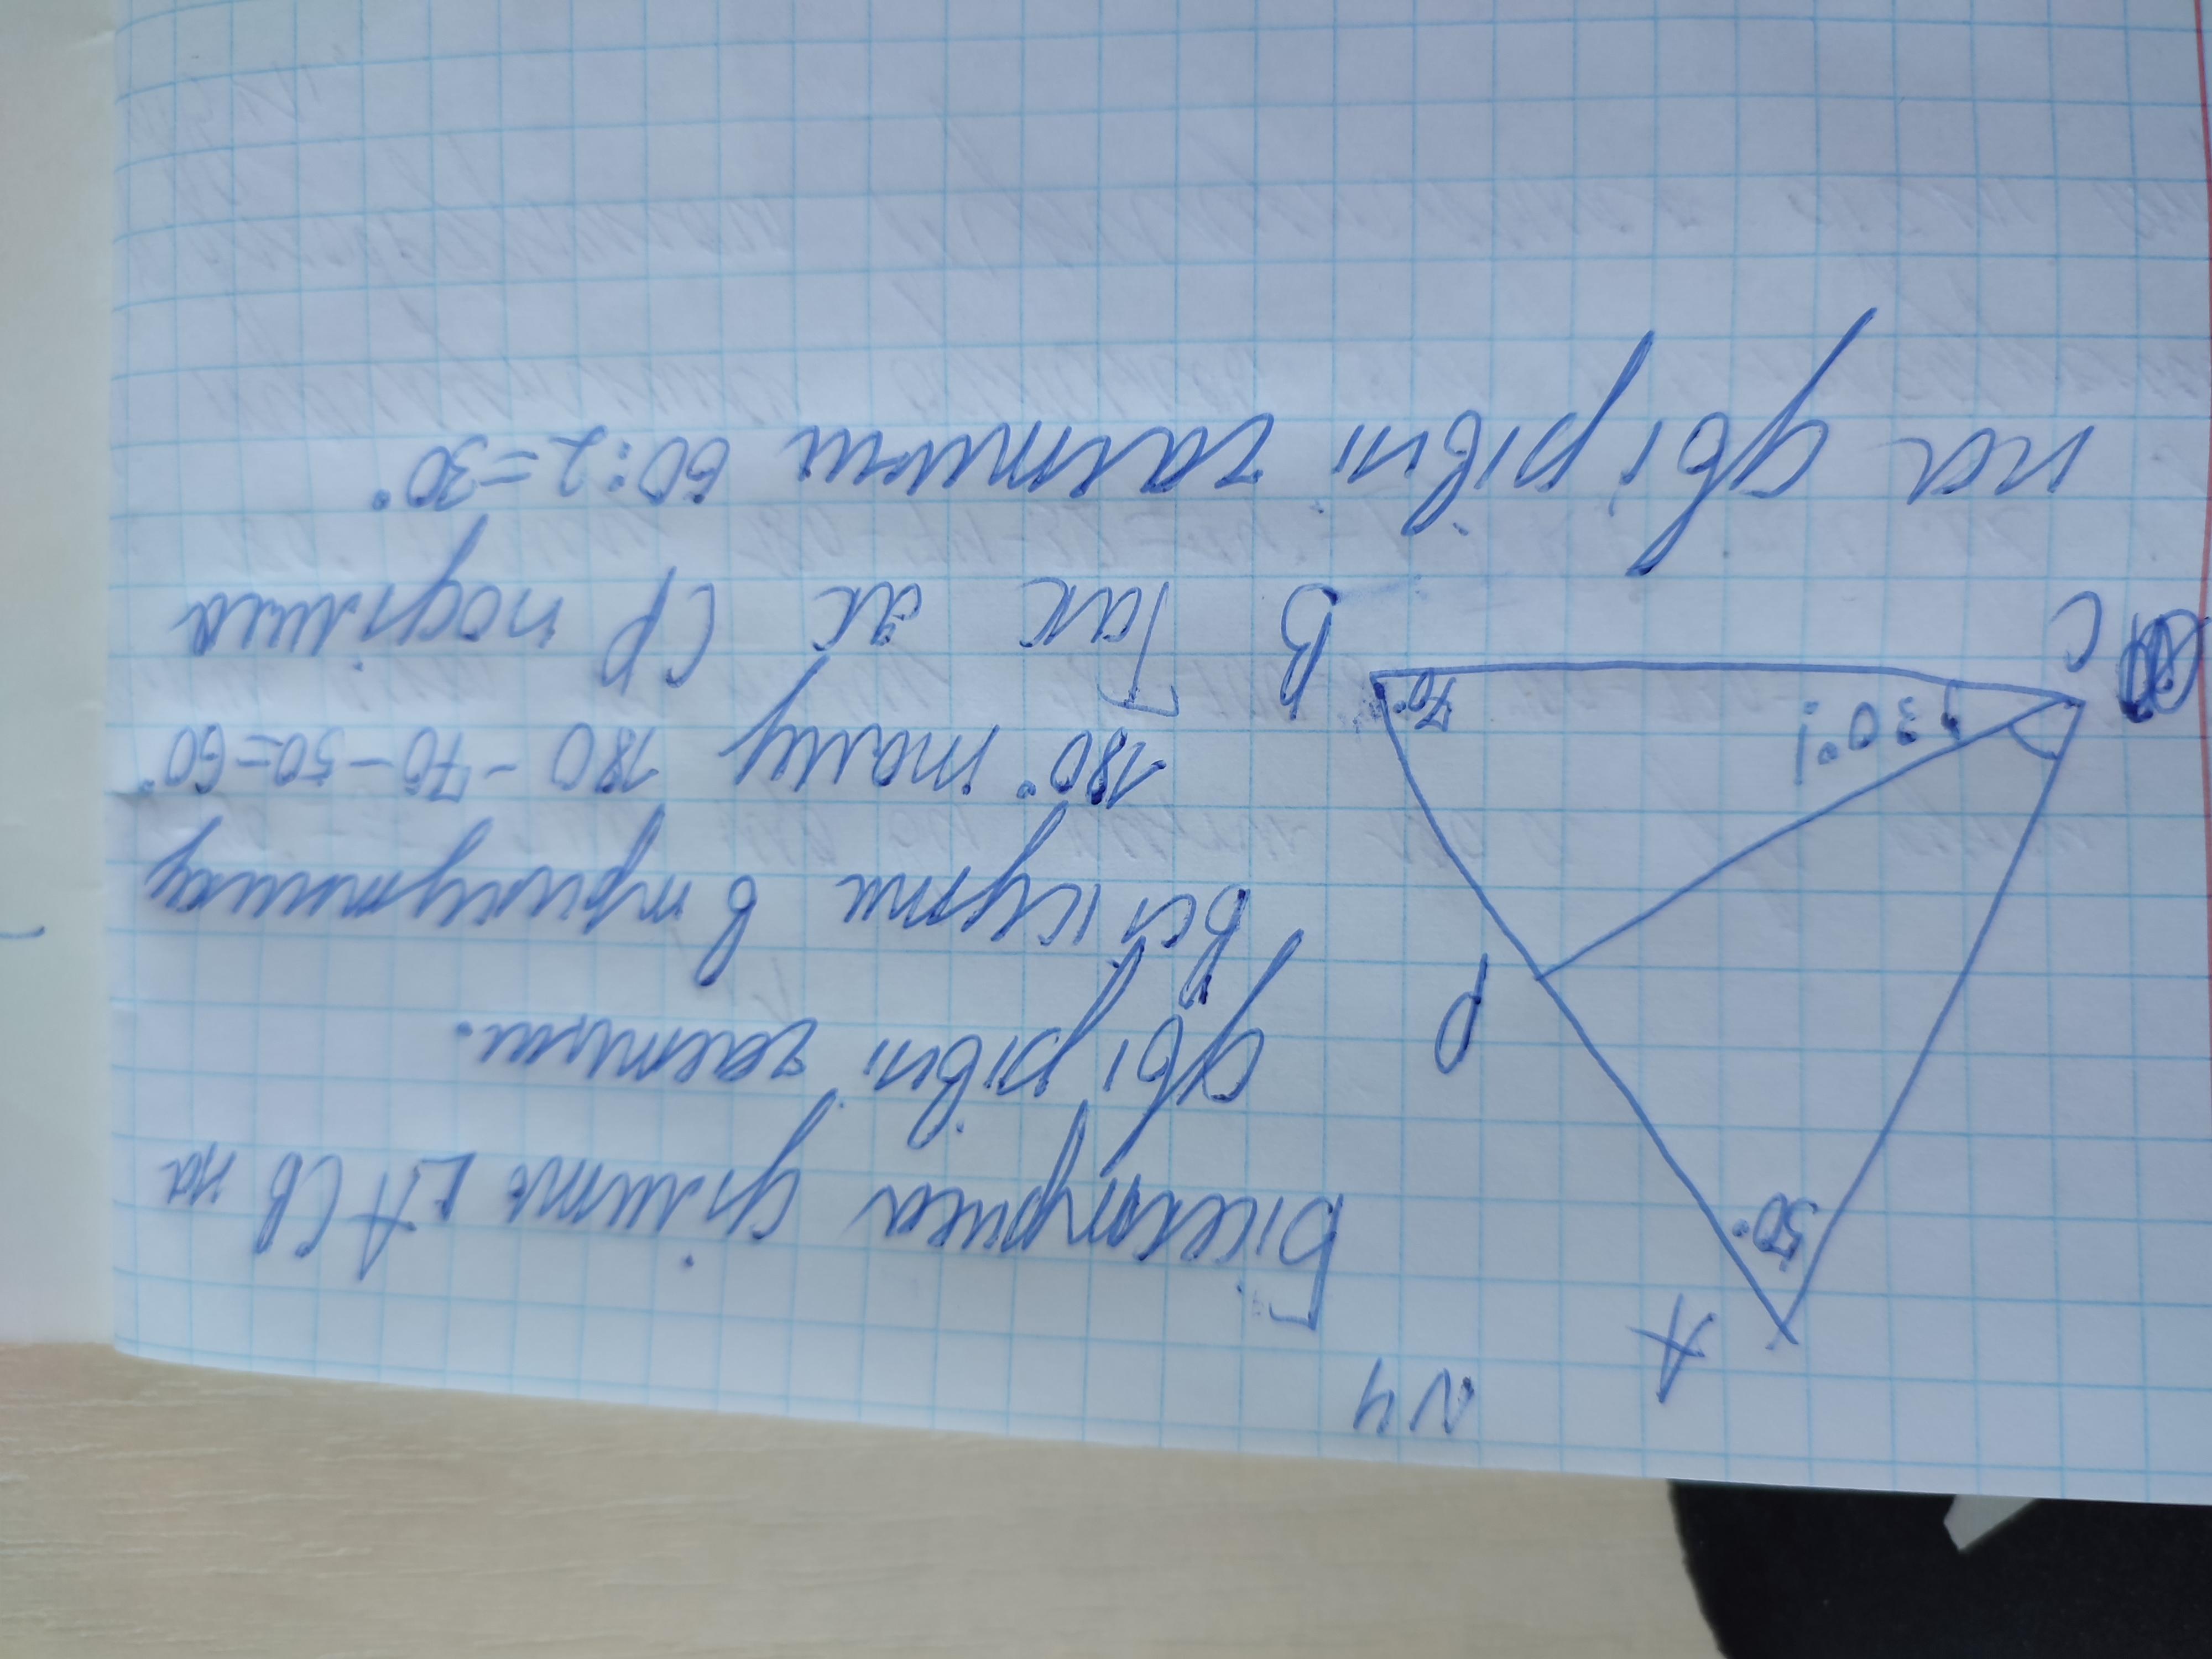 N4
A
Бісектриса ділить ∟ACB на
50°
дві рівні частини.
P
Всі кути в трикутнику
180° тому 180-70-50=60°
30°
70°
C
B
Так як CP поділила
на дві рівні частини 60:2=30°